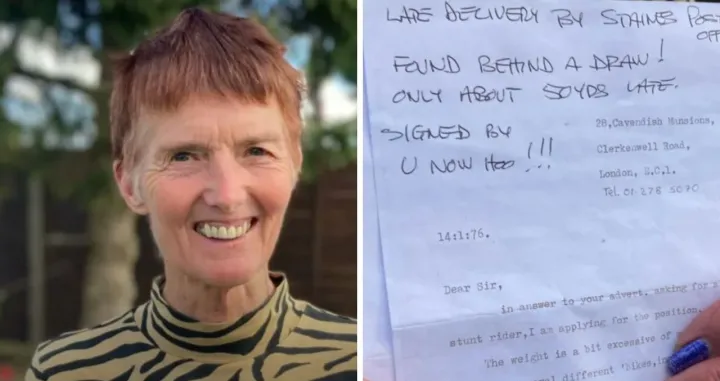 LATE DELIVERY BY STAINES POST
OFF
FOUND BEHIND A DRAW!
ONLY ABOUT 50YDS LATE.
SIGNED BY
U NOW HOO !!!
28,Cavendish Mansions,
Clerkenwell Road,
London, E.C.1.
Tel. 01 278 5070
14:1:76.
Dear Sir,
in answer to your advert. asking for a
stunt rider,I am applying for the position.
The weight is a bit excessive of
different 'bikes,